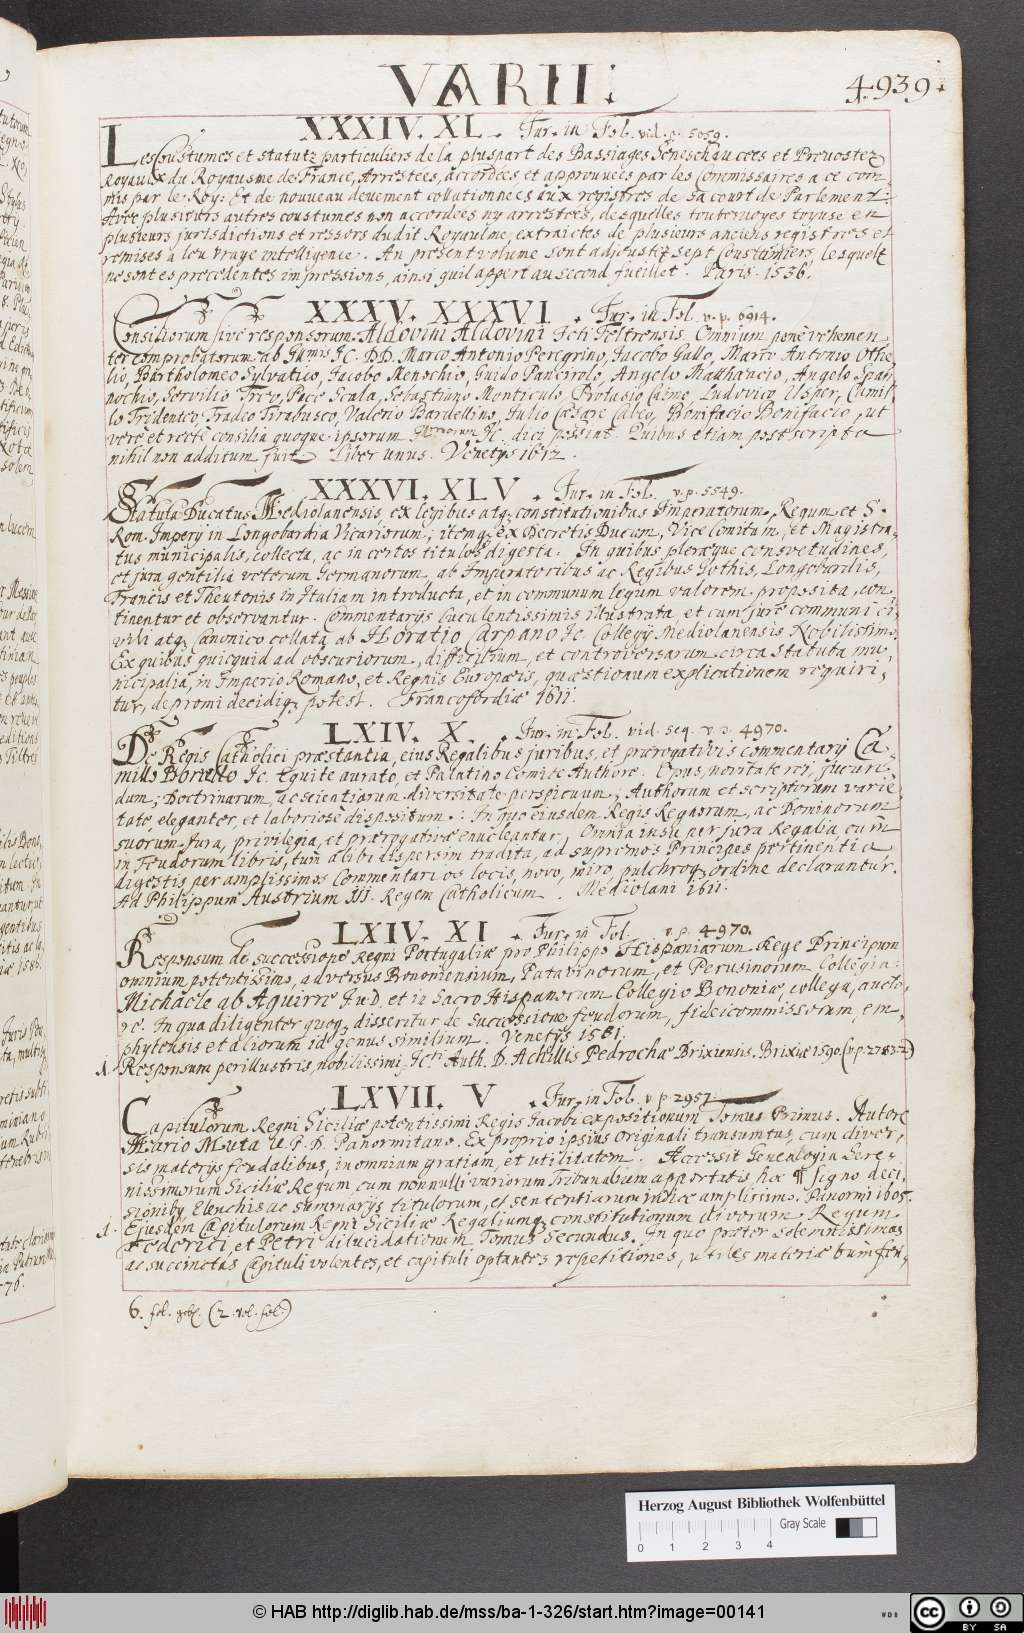 VARII.
4939.
XXXIV. XL. Jur. in Fol. vid. p. 5059.
Les Coustumes et statutz particuliers de la pluspart des Bassiages Seneschaucees et Prevostez
Royaulx du Royausme de France, Arrestees, accordees et approuvees par les Commissaires a ce com-
mis par le Roy: Et de nouveau devement collationnees aux registres de sa court de Parlement.
Avec plusieurs autres coustumes non accordees ny arrestees, desquelles toutesvoyes lon use en
plusieurs jurisdictions et ressors dudit Royaulme, extraictes de plusieurs anciens registres et
remises a leu vraye intelligence. An present volume sont adjoustez sept Coustumiers, lesquelz
ne sont es precedentes impressions, ainsi quil appert au second fueillet. Paris. 1536.
XXXV. XXXVI. Jur. in Fol. v. p. 6914.
Consiliorum sive responsorum Aldovini Aldovini Jcti Feltrensis. Omnium pene vehemen-
ter comprobatorum ab JC. DD. Marco Antonio Peregrino, Jacobo Gallo, Marco Antonio Othe-
lio, Bartholomeo Sylvatico, Jacobo Menochio, Guido Pancirolo, Angelo Matthaeacio, Angelo Span-
nochio, Servilio Treo, Pace Scala, Sebastiano Monticulo, Protasio Calmo, Ludovico Usper, Camil-
lo Tridento, Tradeo Tirabusco, Valerio Bardellino, Julio Caesare Calceo, Bonifacio Bonifacio, ut
vere et recte consilia quoque ipsorum JC. dici possint. Quibus etiam postscripta
nihil non additum fuit. Liber unus. Venetijs 1612.
XXXVI. XLV. Jur. in Fol. v. p. 5549.
Statuta Ducatus Mediolanensis, ex legibus atq; constitutionibus Imperatorum, Regum et S.
Rom. Imperij in Longobardia Vicariorum; itemq; ex Decretis Ducum, Vice Comitum, et Magistra-
tus municipalis, collecta, ac in certos titulos digesta. In quibus pleraeque consvetudines,
et jura gentilia veterum Germanorum, ab Imperatoribus ac Regibus Gothis, Longobardis,
Francis et Theutonis in Italiam introducta, et in communum legum valorem proposita, con-
tinentur et observantur. Commentarijs luculentissimis illustrata, et cum jure communi ci-
vili atq; Canonico collata ab Horatio Carpano Jc. Collegij Mediolanensis Nobilissimo,
Ex quibus quicquid ad obscuriorum, difficilium, et controversarum circa statuta mu-
nicipalia, in Imperio Romano, et Regnis Europaeis, quaestionum explicationem requiri-
tur, depromi decidiq; potest. Francofordiae 1611.
LXIV. X. Jur. in Fol. vid. seq. v. p. 4970.
De Regis Catholici praestantia, eius Regalibus juribus, et praerogativis commentarij Ca-
millo Borrello Jc. Equite aurato, et Palatino Comite Authore. Opus, novitate rei, jucun-
dum; Doctrinarum, ac scientiarum diversitate perspicuum; Authorum et scriptorum varie-
tate, eleganter, et laboriose dispositum: In quo eiusdem Regis Regnorum, ac Dominorum
suorum Jura, privilegia, et praerogativae enucleantur, Omnia insuper jura Regalia, cum
in Feudorum libris, tum alibi dispersim tradita, ad supremos Principes pertinentia
digestis per amplissimos Commentarios locis, novo, miro, pulchroq; ordine declarantur.
Ad Philippum Austrium III. Regem Catholicum. Mediolani 1611.
LXIV. XI. Jur. in Fol. v. p. 4970.
Responsum de successione Regni Portugaliae pro Philippo Hispaniarum Rege Principum
omnium potentissimo, adversus Bononiensium, Patavinorum, et Perusinorum Collegia:
Michaele ab Aguirre J.v.D. et in Sacro Hispanorum Collegio Bononiae, collega, aucto-
re. In qua diligenter quoq; disseritur de successione feudorum, fideicommissorum, em-
phytensis et aliorum id genus similium. Venetijs 1581.
1. Responsum perillustris, nobilissimi Jcti Auth. D. Achillis Pedrochae Brixiensis. Brixiae 1590.
LXVII. V. Jur. in Fol. v. p. 2957.
Capitulorum Regni Siciliae potentissimi Regis Jacobi expositionum Tomus Primus. Autore
Mario Muta U.J.D. Panormitano. Ex proprio ipsius originali transumtus, cum diver-
sis materijs feudalibus, in omnium gratiam, et utilitatem. Accessit Genealogia Sere-
nissimorum Siciliae Regum, cum nonnulli variorum Tribunalium apportatis hoc ¶ signo deci-
sioniby Elenchis ac summarijs titulorum, et sententiarum indice amplissimo. Panormi 1605.
1. Ejusdem Capitulorum Regni Siciliae Regaliumq; constitutionum divorum Regum
Federici, et Petri dilucidationum Tomus Secundus. In quo praeter solemnissimas
ac succinctas Capituli volentes, et capituli optantes repetitiones, utiles materiae bum fen-
6. fol. geb. (2. vol. fol.)
Herzog August Bibliothek Wolfenbüttel
Gray Scale
0 1 2 3 4
© HAB http://diglib.hab.de/mss/ba-1-326/start.htm?image=00141
WDB
cc BY SA